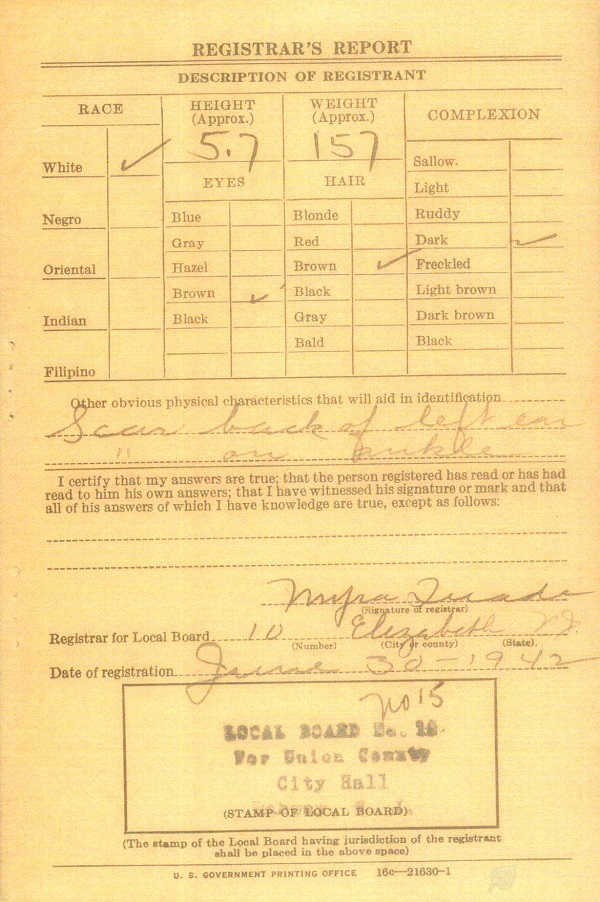 REGISTRAR'S REPORT
DESCRIPTION OF REGISTRANT
RACE
HEIGHT (Approx.)
WEIGHT (Approx.)
COMPLEXION
5.7
157
White ✓
EYES
HAIR
Sallow
Light
Negro
Blue
Blonde
Ruddy
Gray
Red
Dark ✓
Oriental
Hazel
Brown ✓
Freckled
Brown ✓
Black
Light brown
Indian
Black
Gray
Dark brown
Bald
Black
Filipino
Other obvious physical characteristics that will aid in identification
Scar back of left ear
" on
I certify that my answers are true; that the person registered has read or has had
read to him his own answers; that I have witnessed his signature or mark and that
all of his answers of which I have knowledge are true, except as follows:
Myra
(Signature of registrar)
Registrar for Local Board 10 Elizabeth N.J.
(Number) (City or county) (State)
Date of registration June 30-1942
no 15
LOCAL BOARD No.
For Union County
City Hall
(STAMP OF LOCAL BOARD)
(The stamp of the Local Board having jurisdiction of the registrant
shall be placed in the above space)
U. S. GOVERNMENT PRINTING OFFICE 16c—21630-1